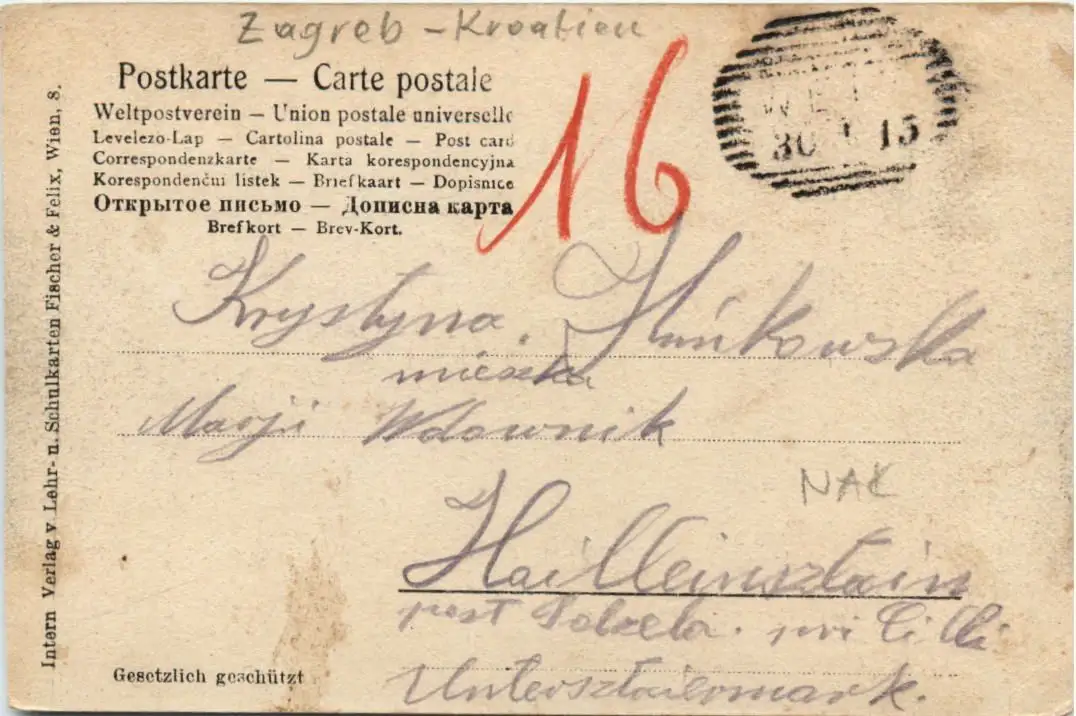 Zagreb - Kroatien
16
30 15
Postkarte — Carte postale
Weltpostverein — Union postale universelle
Levelezo-Lap — Cartolina postale — Post card
Correspondenzkarte — Karta korespondencyjna
Korespondenčni listek — Briefkaart — Dopisnice
Открытое письмо — Дописна карта
Brefkort — Brev-Kort.
Intern Verlag v Lehr- u. Schulkarten Fischer & Felix, Wien, 8.
Krystyna
mieszka
Marji Wdownik
NAK
Hailleinsztain
post Polzela. pri Cilli
Untersztaiermark.
Gesetzlich geschützt